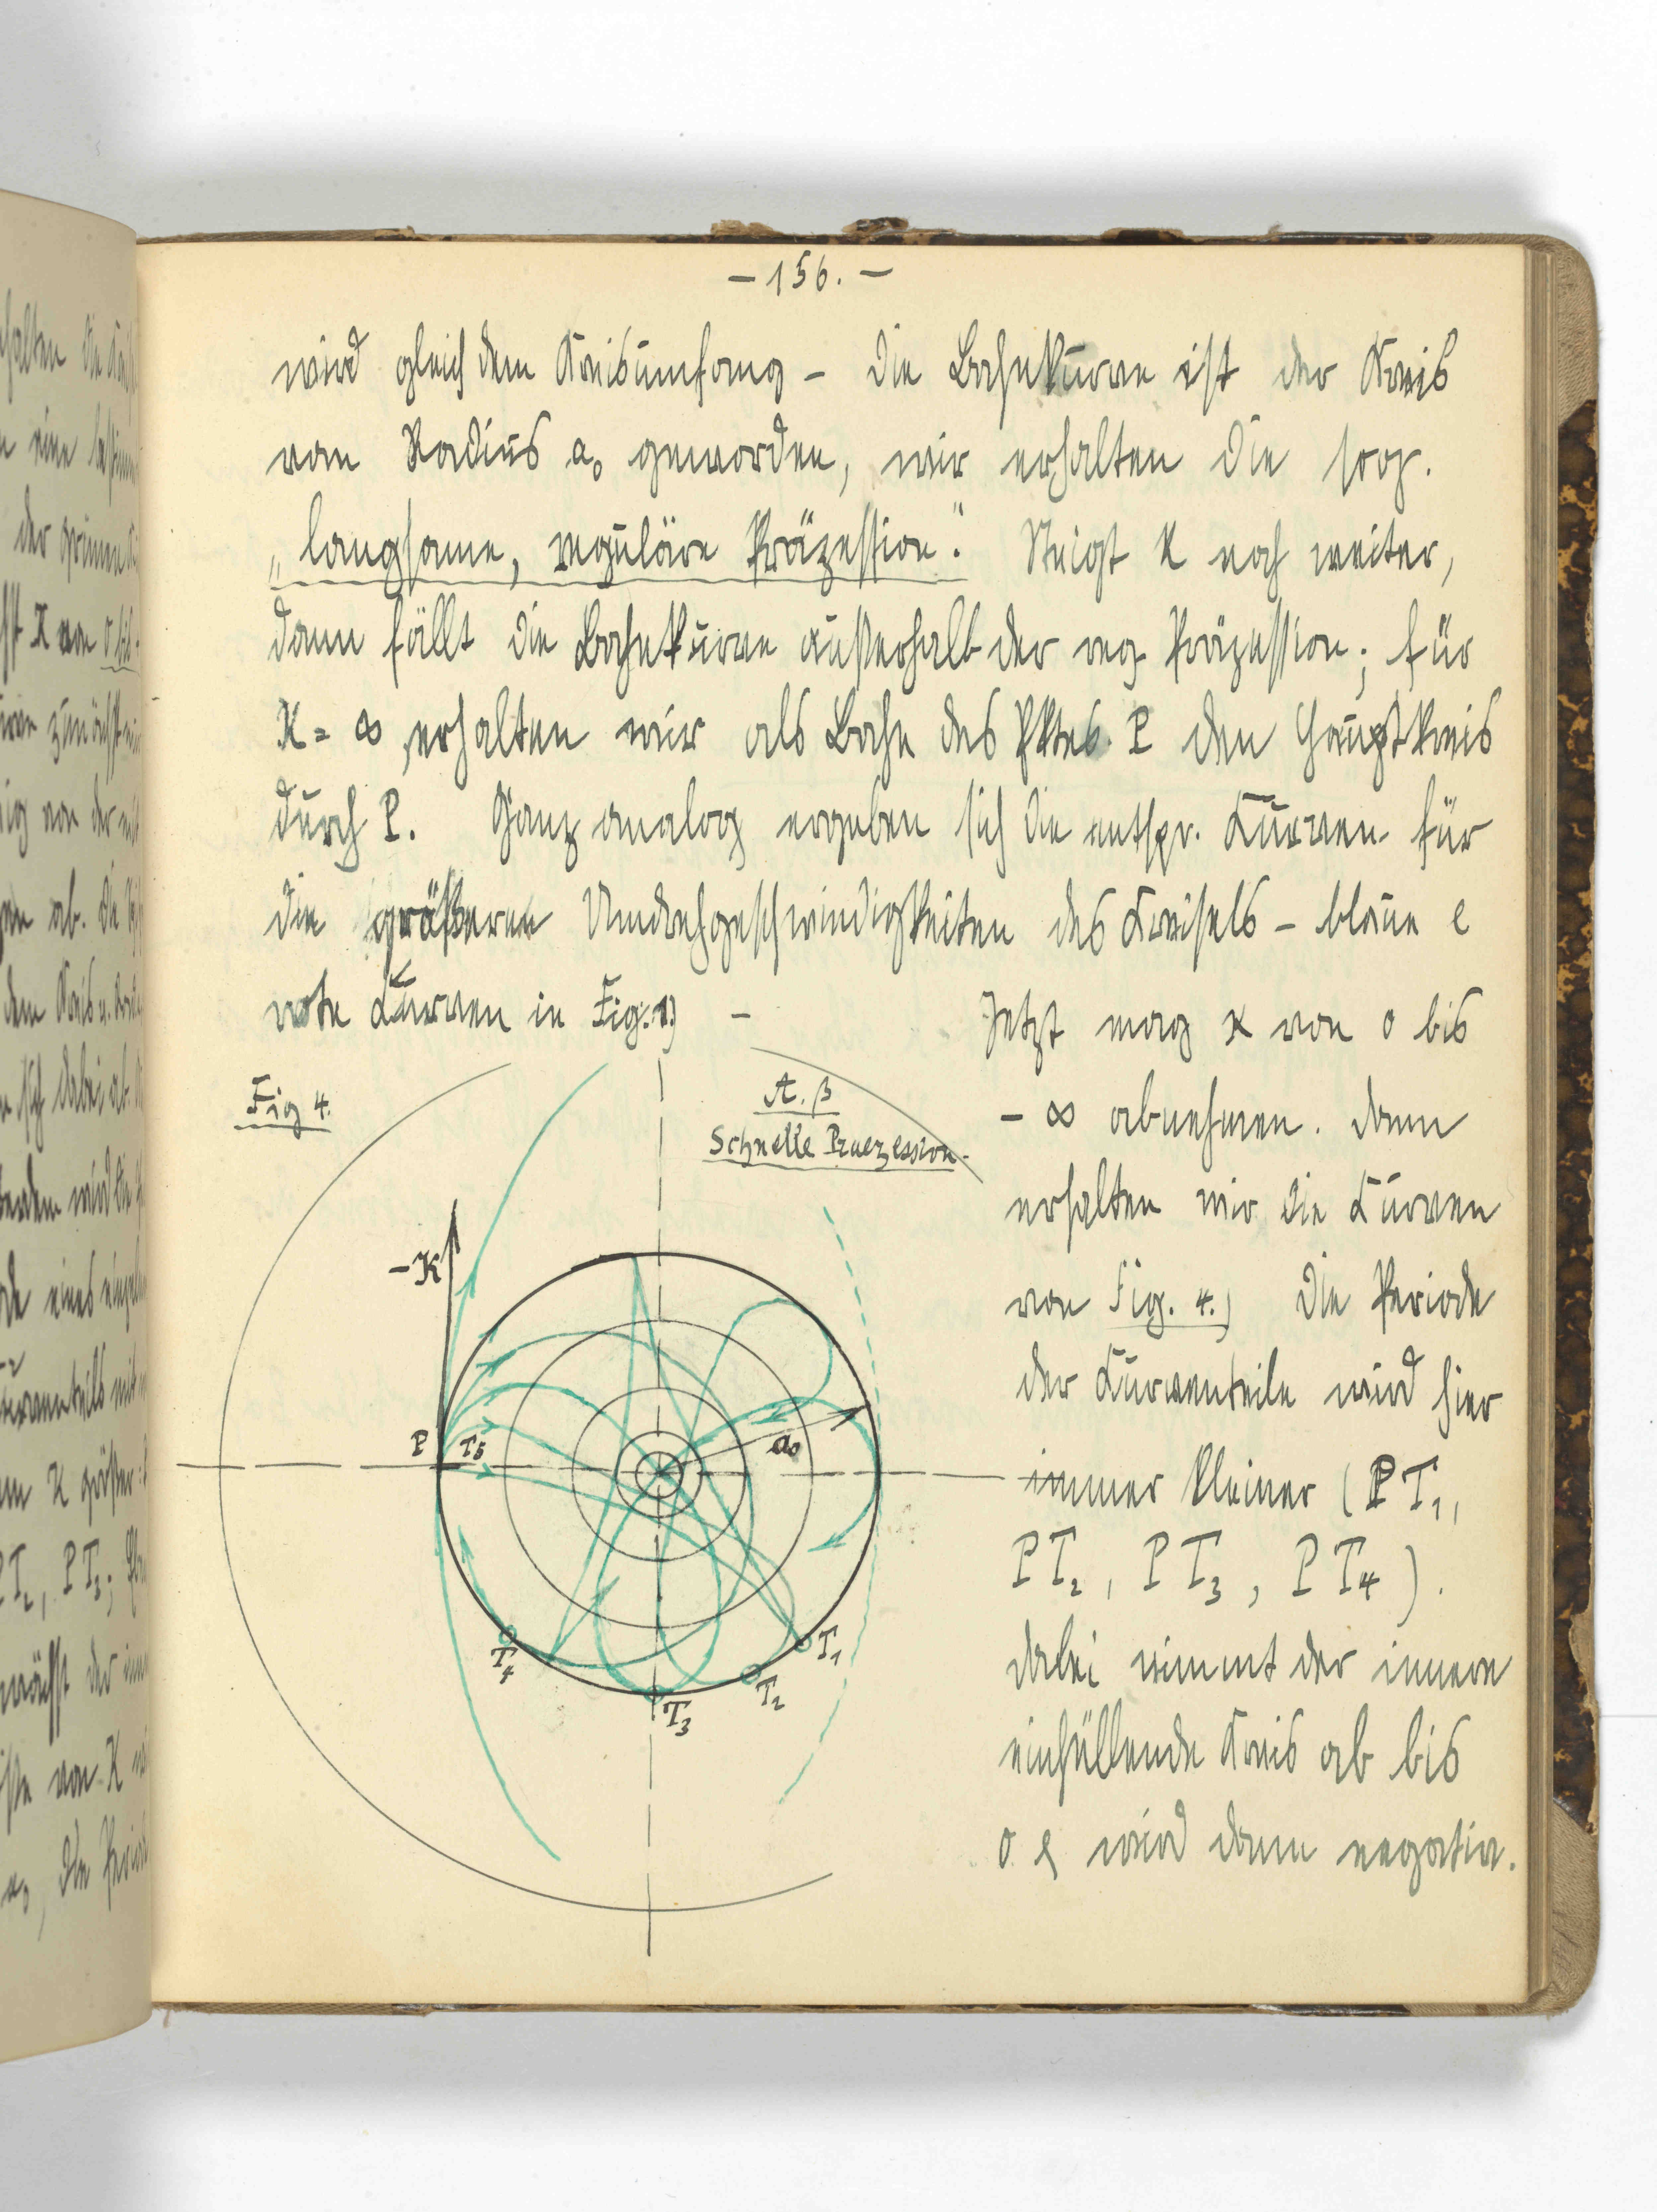 – 156. –
wird gleich dem Kreisumfang – die Bahnkurve ist der Kreis
vom Radius a₀ geworden, wir erhalten die sog.
„langsame, reguläre Präzession“. Steigt K noch weiter,
dann fällt die Bahnkurve außerhalb der reg Präzession; für
K = ∞ erhalten wir als Bahn des Pktes P den Hauptkreis
durch P. Ganz analog ergeben sich die entspr. Kurven für
die größeren Umdrehgeschwindigkeiten des Kreisels – blaue &
rote Kurven in Fig. 1) –
Jetzt mag K von 0 bis
– ∞ abnehmen. Dann
erhalten wir die Kurven
von Fig. 4.) Die Periode
der Kurventeile wird hier
immer kleiner (PT₁,
PT₂, PT₃, PT₄).
Dabei nimmt der innere
einhüllende Kreis ab bis
0 & wird dann negativ.
Fig 4.
A. β
Schnelle Praezession.
–K
P
T₅
a₀
T₁
T₂
T₃
T₄